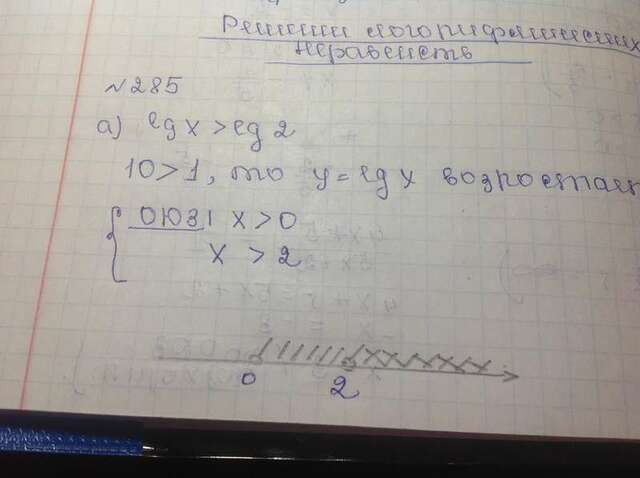 Решении логорифмических
неравенств
№285
а) lg x > lg 2
10>1, то y=lg x возростает
{ ООЗ| x>0
x > 2
0 2